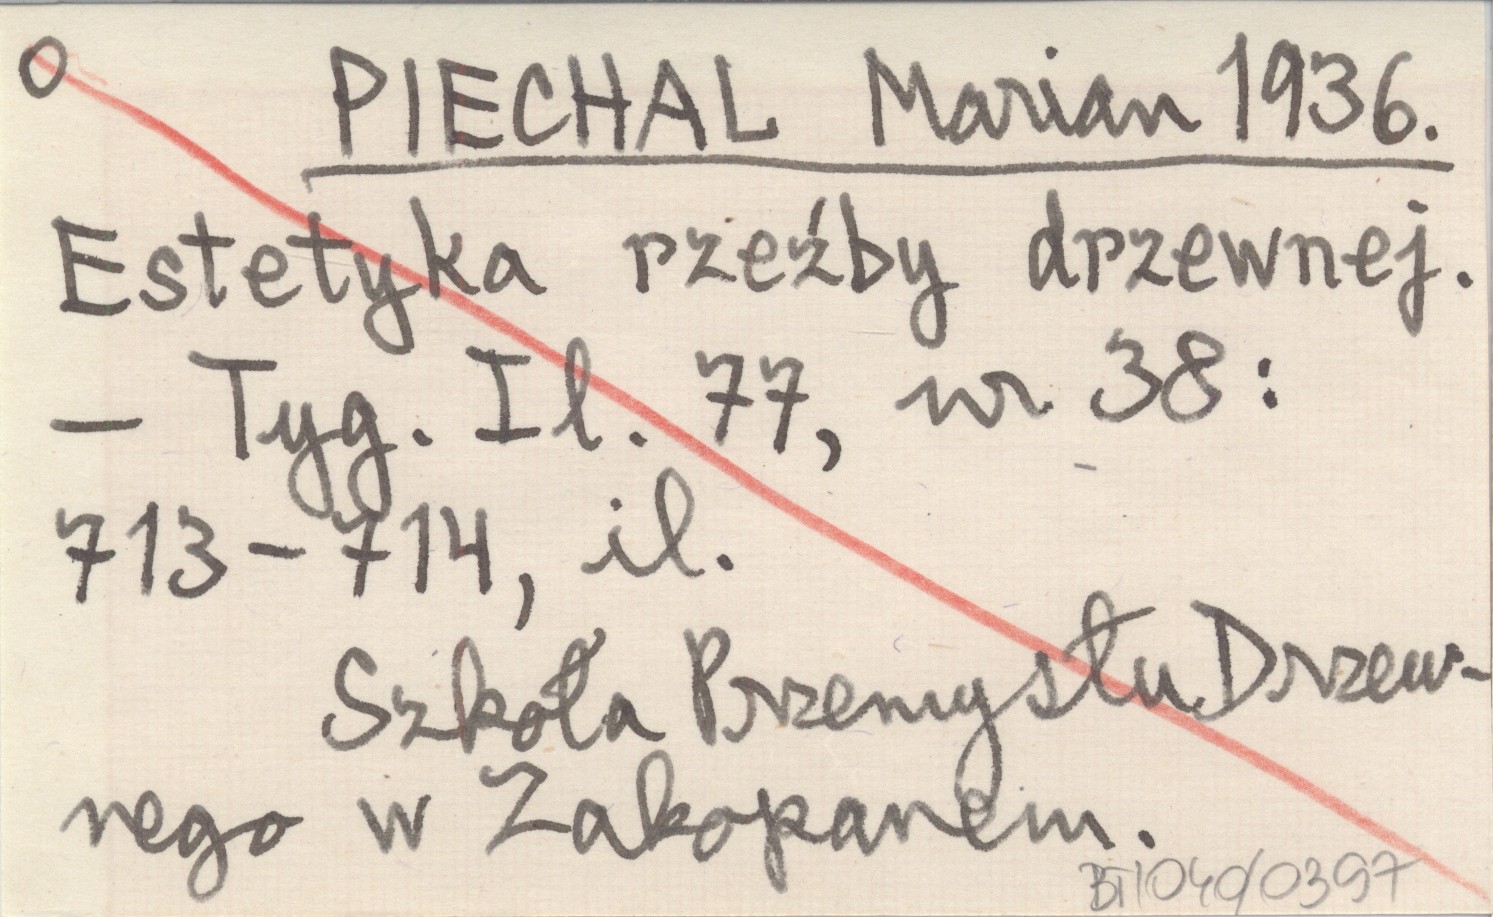 O PIECHAL Marian 1936.
Estetyka rzeźby drzewnej.
– Tyg. Il. 77, nr 38:
713–714, il.
Szkoła Przemysłu Drzew-
nego w Zakopanem.
BT/040/0397